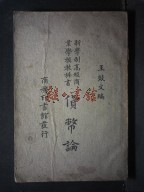 王效文編
新學制高級商
業學校教科書
貨幣論
商務印書館發行